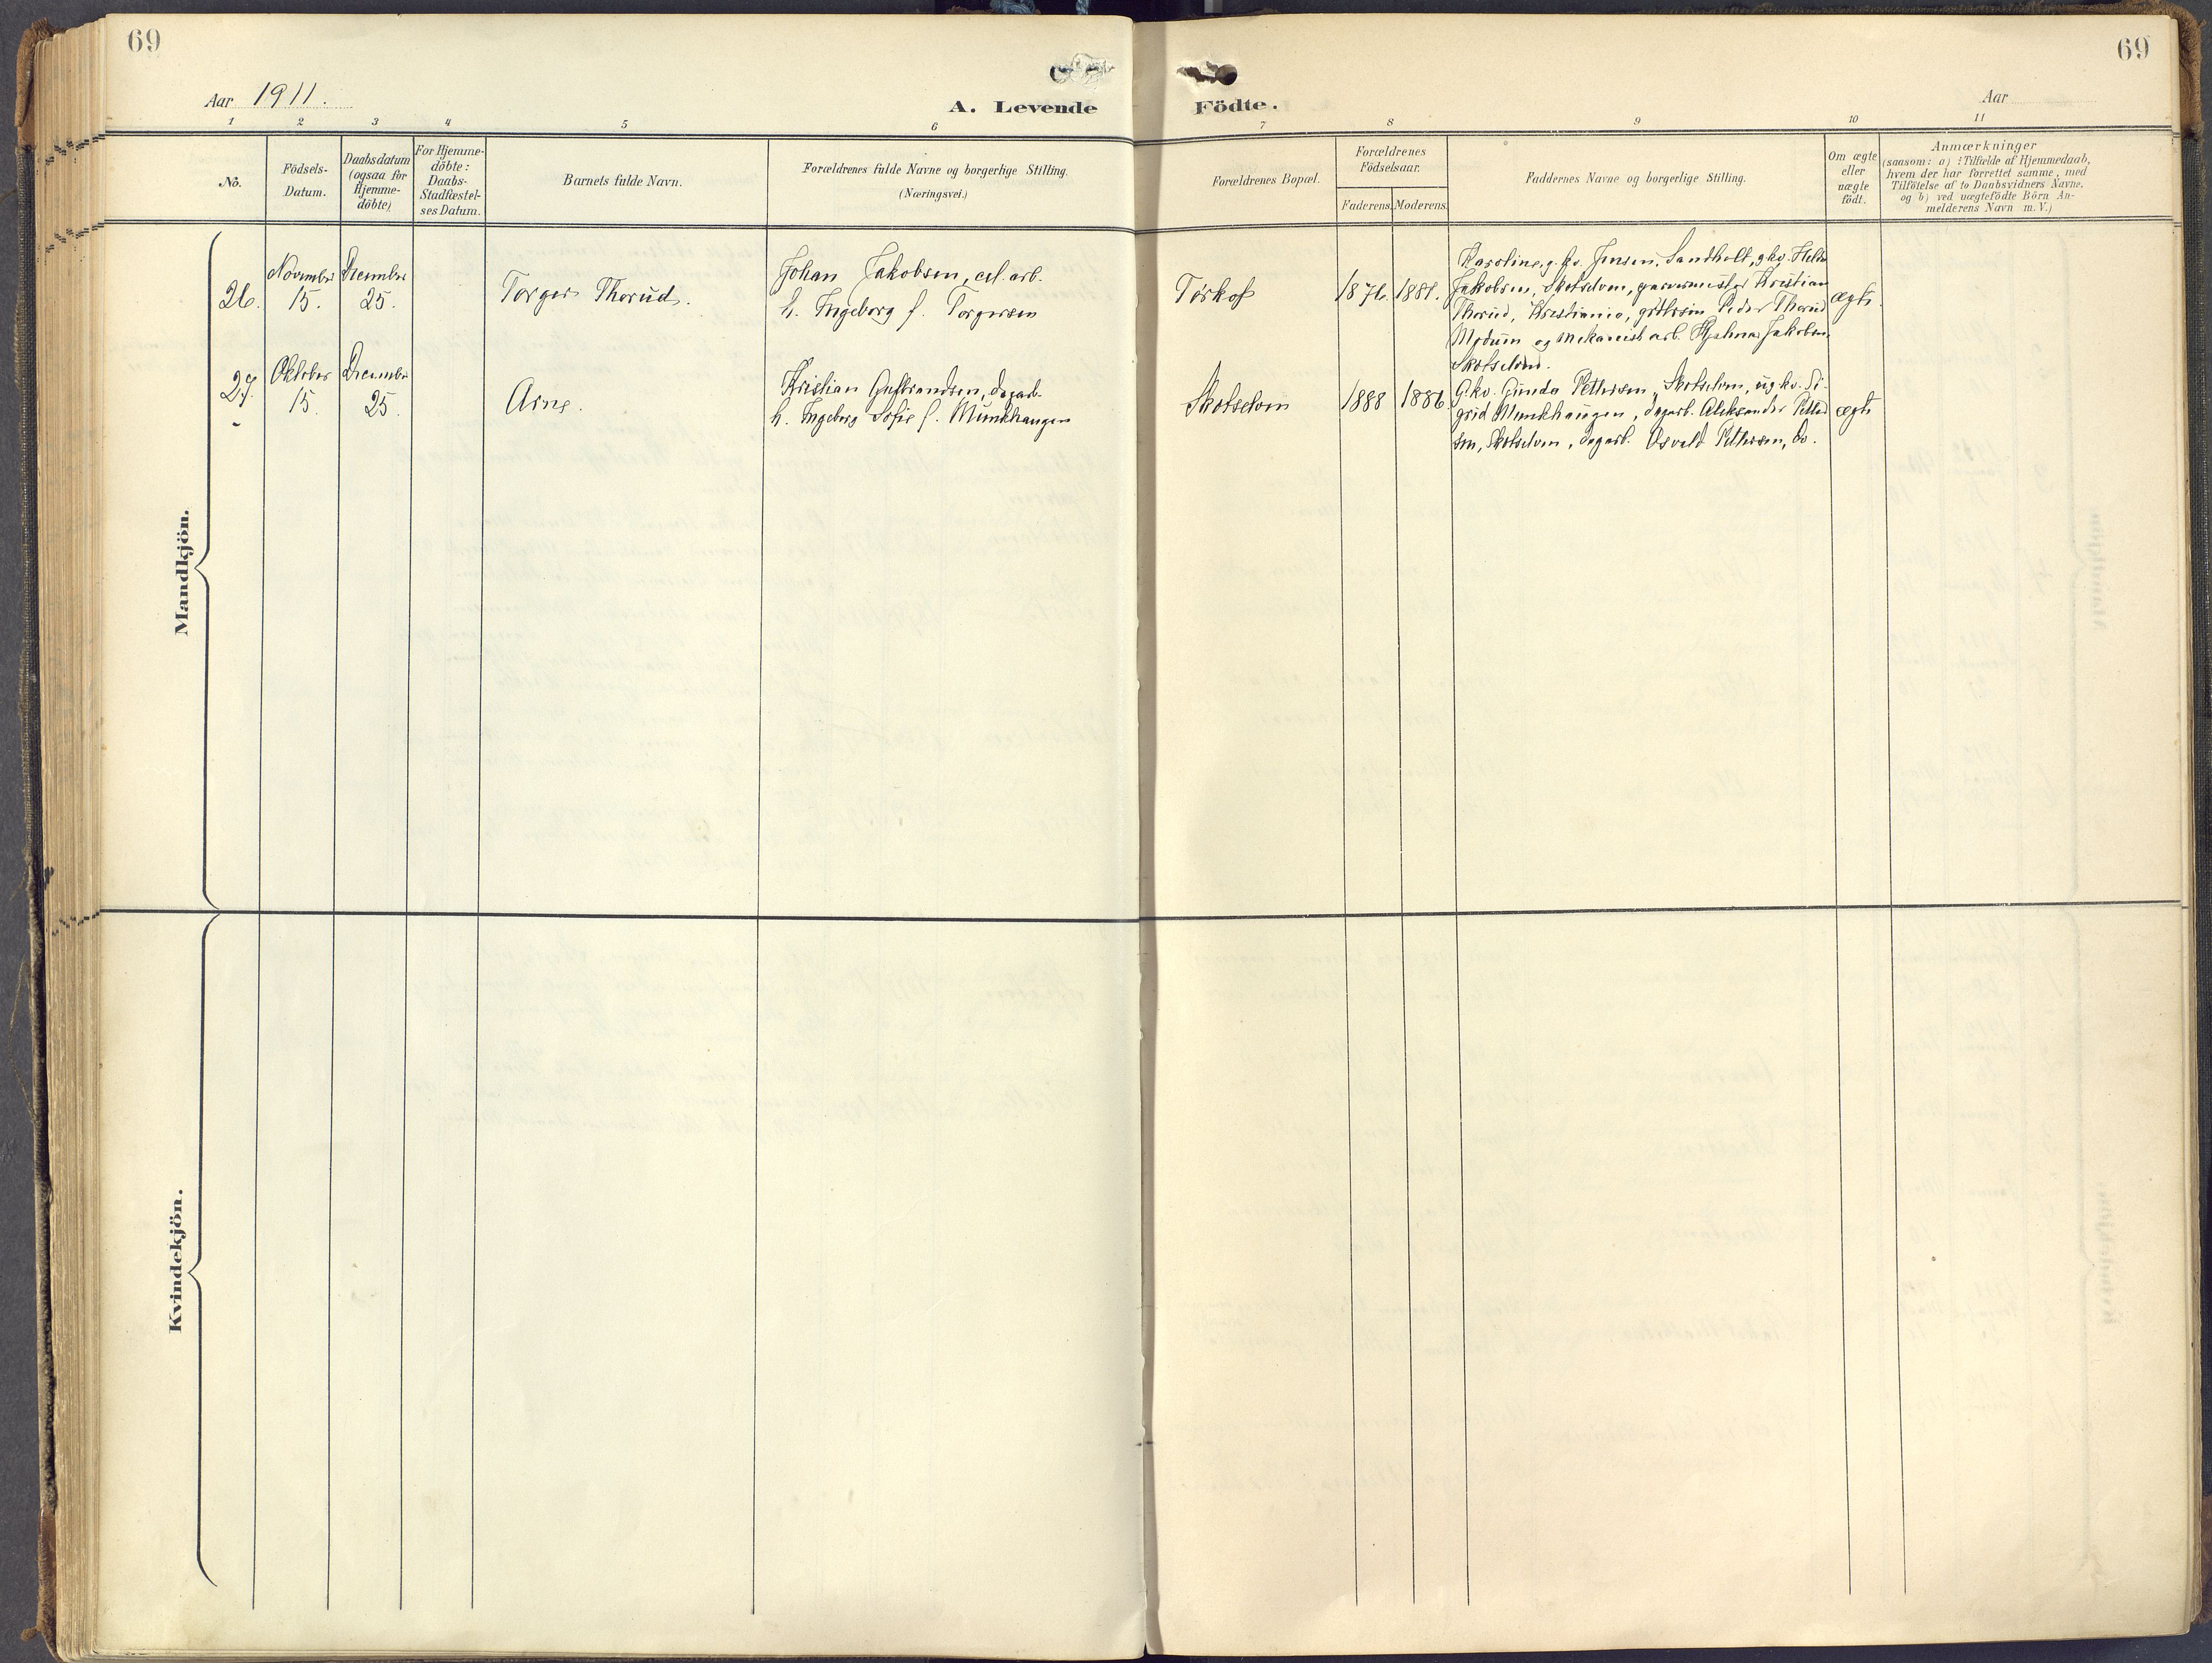 69
69
Aar 1911.
A. Levende Födte.
Aar
1 2 3 4 5 6 7 8 9 10 11
No.
Födsels-
Datum.
Daabsdatum
(ogsaa for
Hjemme-
döbte)
For Hjemme-
döbte:
Daabs-
Stadfæstel-
ses Datum.
Barnets fulde Navn.
Forældrenes fulde Navne og borgerlige Stilling.
(Næringsvei.)
Forældrenes Bopæl.
Forældrenes
Födselsaar.
Faderens. Moderens.
Faddernes Navne og borgerlige Stilling.
Om ægte
eller
uægte
født.
Anmærkninger
(saasom: a) i Tilfælde af Hjemmedaab,
hvem der har forrettet samme, med
Tilföielse af to Daabsvidners Navne.
og b) ved uægtefödte Börn An-
melderens Navn m. V.)
Mandkjön.
26.
November
15.
December
25.
Torger Thorud.
Johan Jakobsen, cel. arb.
h. Ingeborg f. Torgersen
Torkop
1876. 1881.
Karoline, g. kv. Jensen, Sandholt, g. kv.
Jakobsen, Skotselven, garvermester Kristian
Thorud, Kristiania, Peder Thorud
Modum og mekanisk arb. Hjalmar Jakobsen,
Skotselven.
ægte.
27.
Oktober
15.
December
25.
Arne.
Kristian Gulbrandsen, dagarb.
h. Ingeborg Sofie f. Munkhaugen
Skotselven
1888 1886.
G. kv. Gunda Pettersen, Skotselven, ug. kv. Si-
grid Munkhaugen, dagarb. Aleksander Petter
sen, Skotselven, dagarb. Osvald Pettersen, do.
ægte
Kvindekjön.